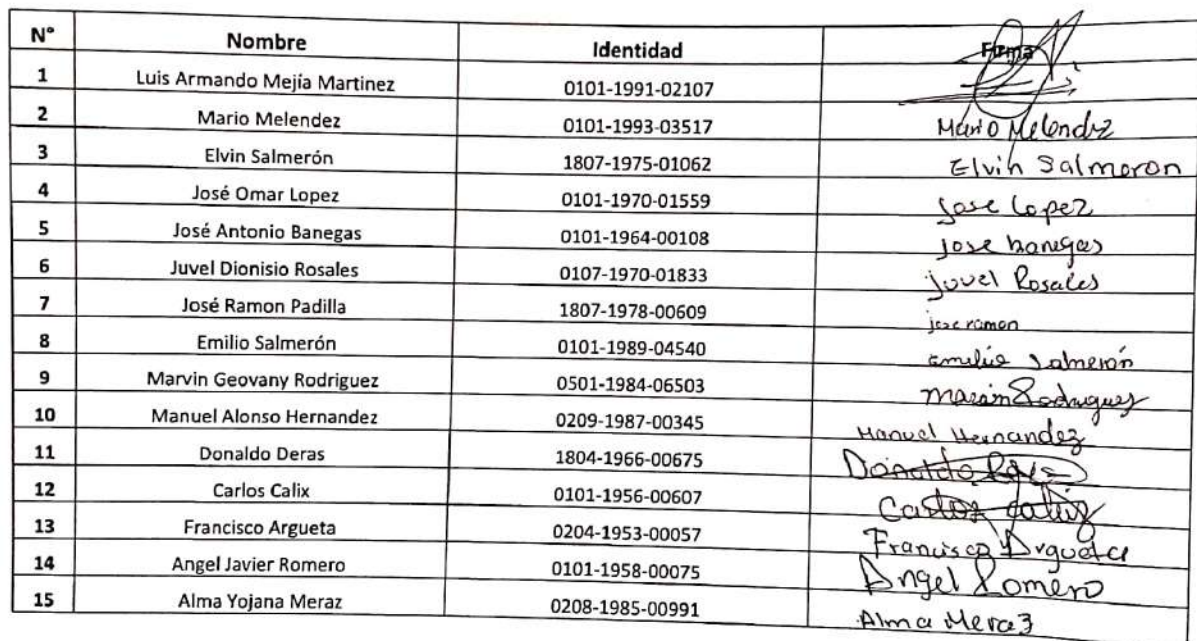 N° Nombre Identidad Firma
1 Luis Armando Mejía Martinez 0101-1991-02107
2 Mario Melendez 0101-1993-03517 Mario Melendez
3 Elvin Salmerón 1807-1975-01062 Elvin Salmeron
4 José Omar Lopez 0101-1970-01559 Jose Lopez
5 José Antonio Banegas 0101-1964-00108 jose banegas
6 Juvel Dionisio Rosales 0107-1970-01833 juvel Rosales
7 José Ramon Padilla 1807-1978-00609 jose ramon
8 Emilio Salmerón 0101-1989-04540 emilio salmerón
9 Marvin Geovany Rodriguez 0501-1984-06503 Marvin Rodriguez
10 Manuel Alonso Hernandez 0209-1987-00345 Manuel Hernandez
11 Donaldo Deras 1804-1966-00675 Donaldo
12 Carlos Calix 0101-1956-00607 Carlos calix
13 Francisco Argueta 0204-1953-00057 Francisco Argueta
14 Angel Javier Romero 0101-1958-00075 Angel Romero
15 Alma Yojana Meraz 0208-1985-00991 Alma Meraz